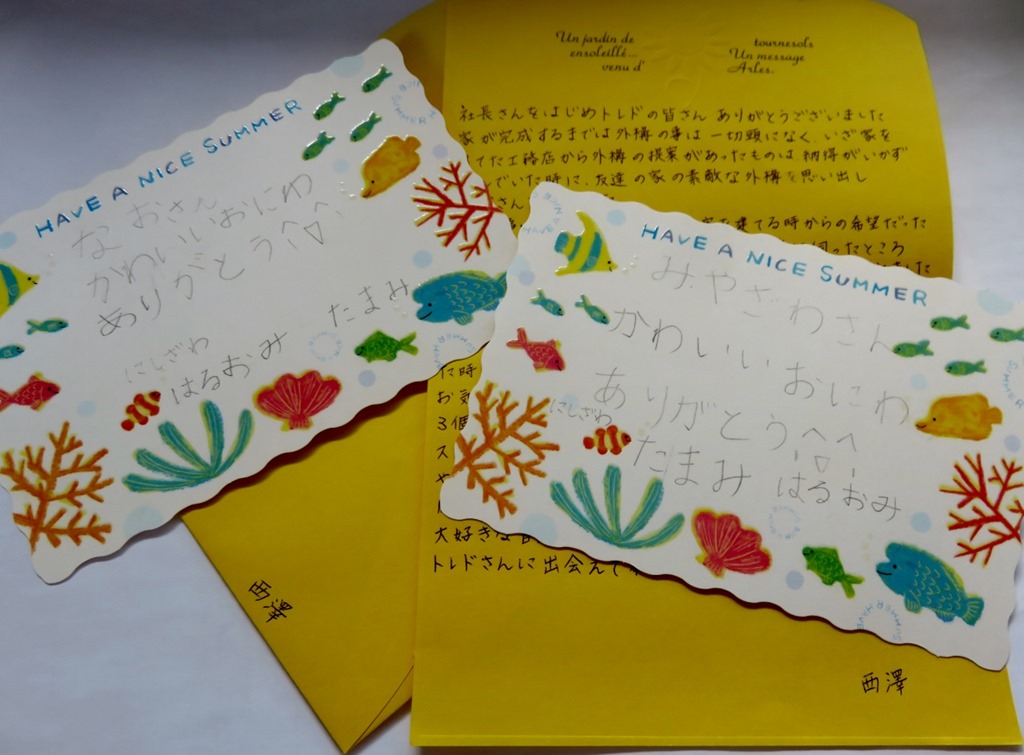 HAVE A NICE SUMMER
なおさん
かわいいおにわ
ありがとう
にしざわ
はるおみ
たまみ
HAVE A NICE SUMMER
みやざわさん
かわいいおにわ
ありがとう
にしざわ
たまみ はるおみ
Un jardin de tournesols
ensoleillé... Un message
venu d' Arles.
社長さんをはじめトレドの皆さん ありがとうございました
家が完成するまでは外構の事は一切頭になく、いざ家を
てた工務店から外構の提案があったものは納得がいかず
でいた時に、友達の家の素敵な外構を思い出し
さん
家を建てる時からの希望だった
伺ったところ
た時
お気
3個
ス
や
大好きな
トレドさんに出会えて
西澤
西澤